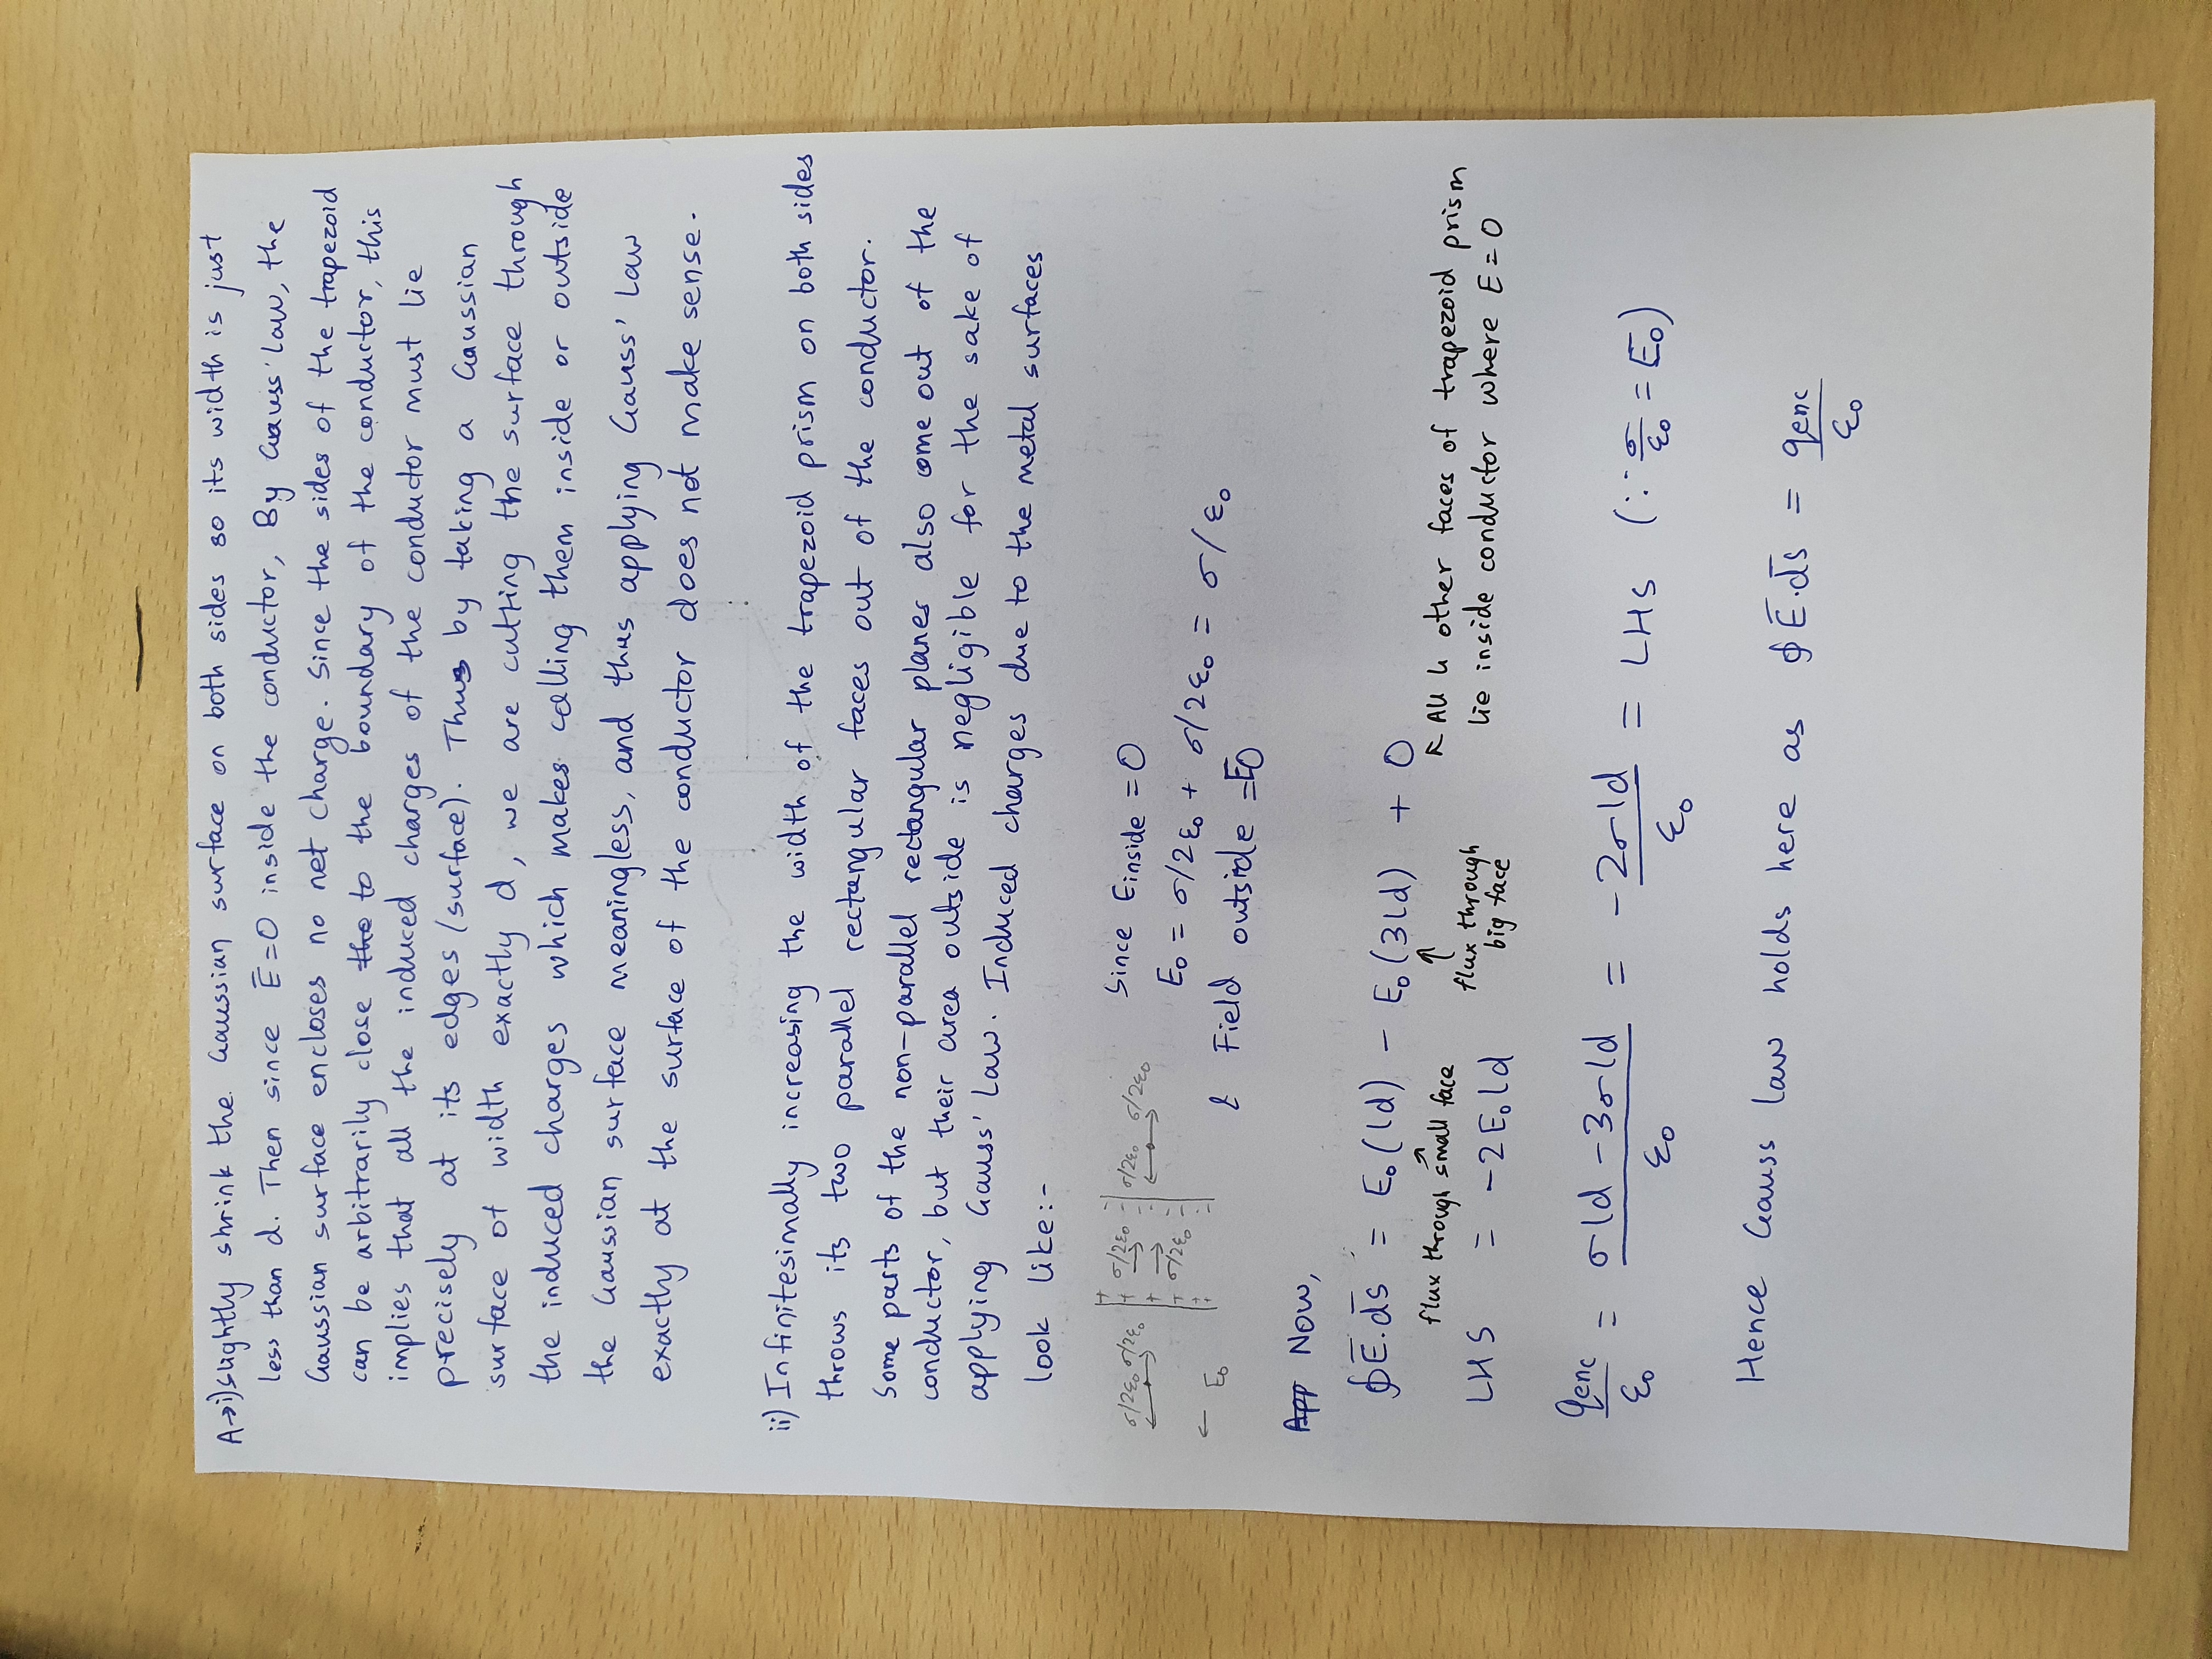 A→i) Slightly shrink the Gaussian surface on both sides so its width is just
less than d. Then since E̅=0 inside the conductor, By Gauss' law, the
Gaussian surface encloses no net charge. Since the sides of the trapezoid
can be arbitrarily close the to the boundary of the conductor, this
implies that all the induced charges of the conductor must lie
precisely at its edges (surface). Thus by taking a Gaussian
surface of width exactly d, we are cutting the surface through
the induced charges which makes calling them inside or outside
the Gaussian surface meaningless, and thus applying Gauss' Law
exactly at the surface of the conductor does not make sense.
ii) Infinitesimally increasing the width of the trapezoid prism on both sides
throws its two parallel rectangular faces out of the conductor.
Some parts of the non-parallel rectangular planes also come out of the
conductor, but their area outside is negligible for the sake of
applying Gauss' Law. Induced charges due to the metal surfaces
look like:-
σ/2ε₀ σ/2ε₀ + + + + + + σ/2ε₀ σ/2ε₀ - - - - - - σ/2ε₀ σ/2ε₀
← E₀
Since Einside = 0
E₀ = σ/2ε₀ + σ/2ε₀ = σ/ε₀
& Field outside = E₀
App Now,
∮E̅.d̅s̅ = E₀(ld) - E₀(3ld) + 0
flux through small face
flux through
big face
↖ All 4 other faces of trapezoid prism
lie inside conductor where E = 0
LHS = -2E₀ld
qenc/ε₀ = (σld - 3σld)/ε₀ = -2σld/ε₀ = LHS (∵ σ/ε₀ = E₀)
Hence Gauss law holds here as ∮E̅.d̅s̅ = qenc/ε₀